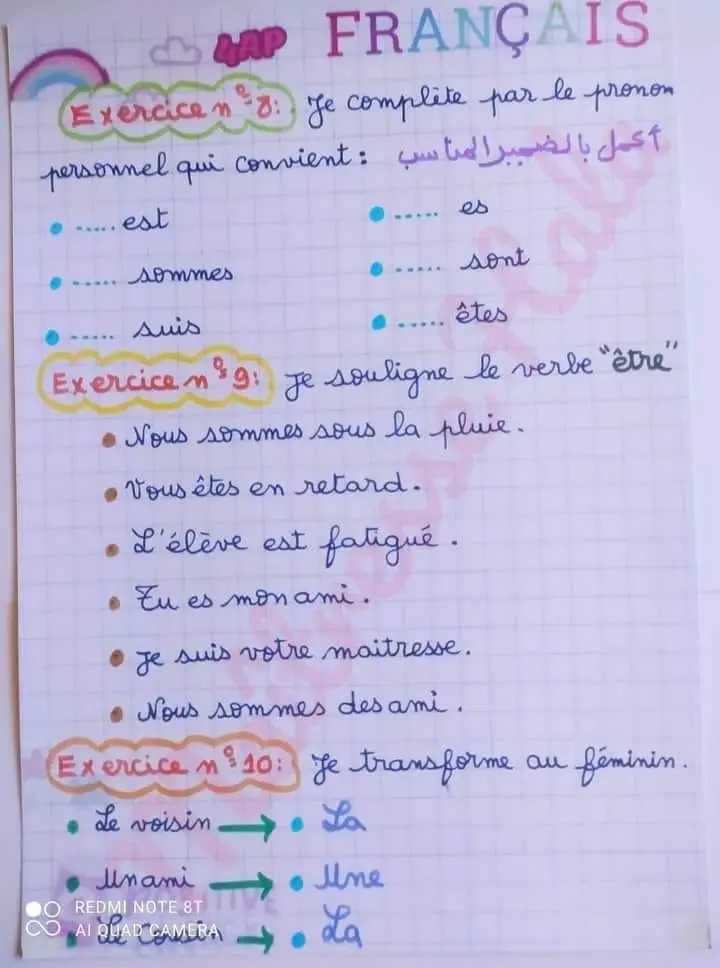 4AP FRANÇAIS
Exercice n°8: Je complète par le pronom
personnel qui convient : أكمل بالضمير المناسب
..... est ..... es
..... sommes ..... sont
..... suis ..... êtes
Exercice n°9: Je souligne le verbe "être"
Nous sommes sous la pluie.
Vous êtes en retard.
L'élève est fatigué.
Tu es mon ami.
Je suis votre maitresse.
Nous sommes des ami.
Exercice n°10: Je transforme au féminin.
Le voisin → La
Un ami → Une
Le cousin → La
REDMI NOTE 8T
AI QUAD CAMERA